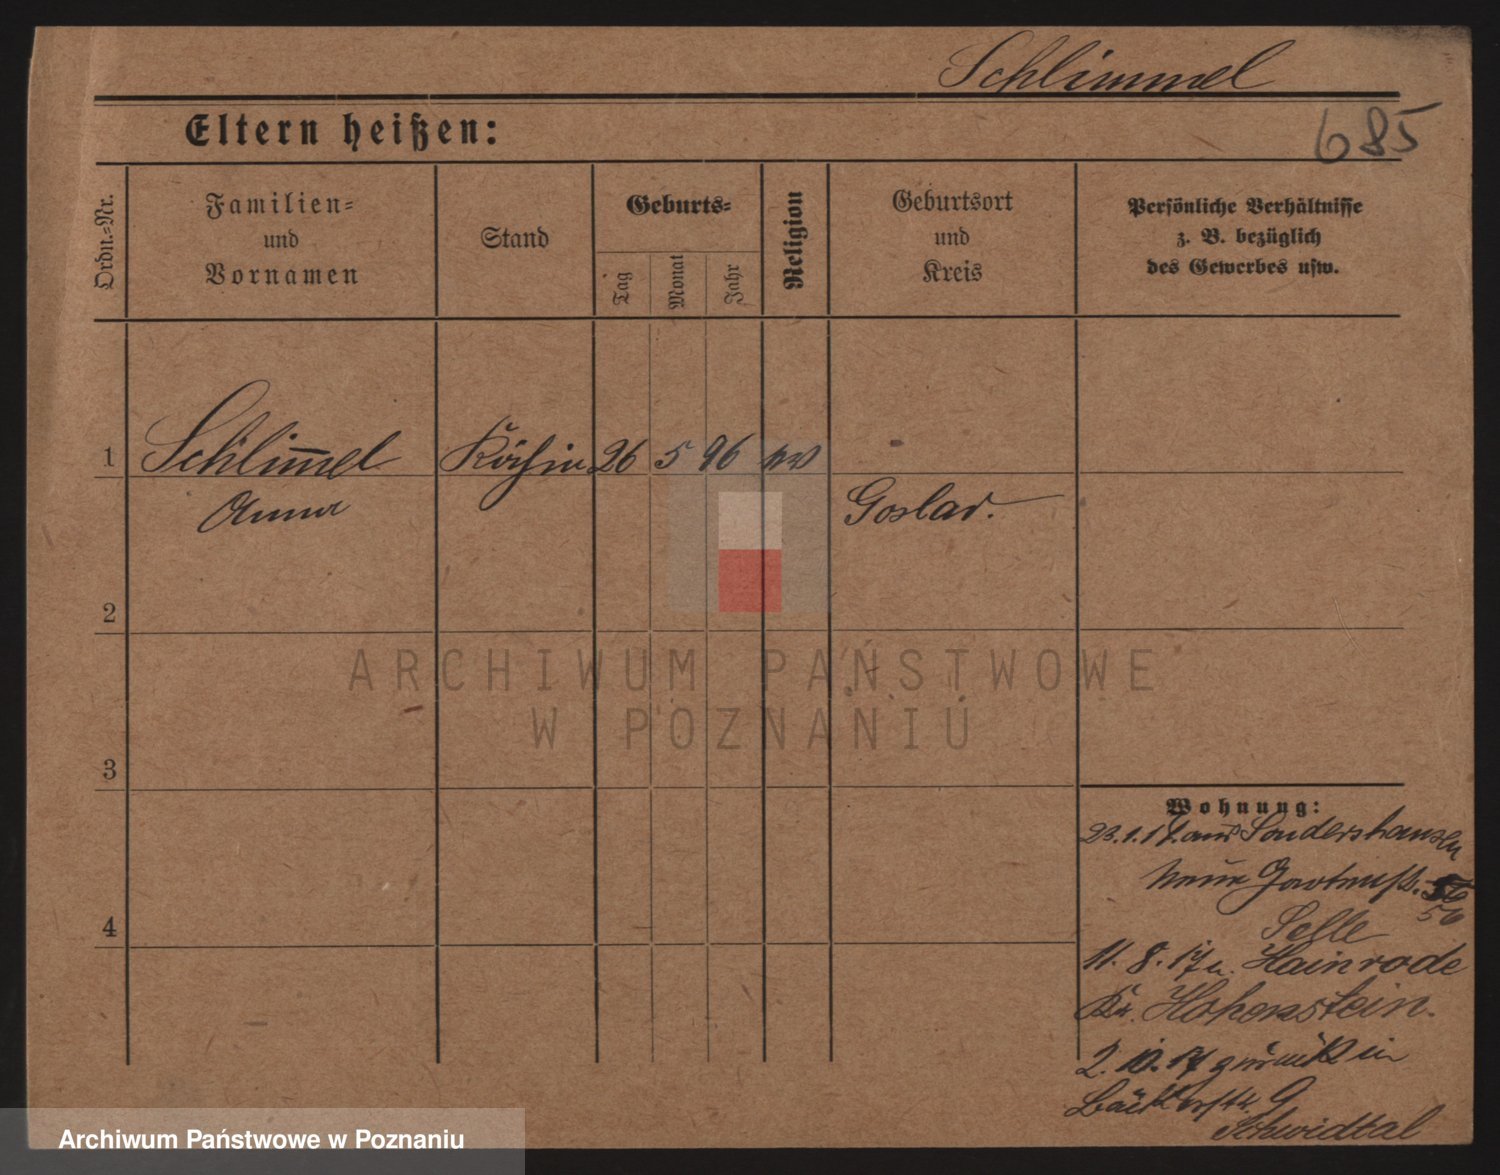 Schlimmel
685
Eltern heißen:
Ordn.-Nr.
Familien-
und
Vornamen
Stand
Geburts-
Tag
Monat
Jahr
Religion
Geburtsort
und
Kreis
Persönliche Verhältnisse
z. B. bezüglich
des Gewerbes usw.
1 Schlim̅el Köchin 26 5 96 ev
Anna
Goslar.
2
ARCHIWUM PAŃSTWOWE
W POZNANIU
3
Wohnung:
23.1.17. aus Sondershausen
Neue Gartenstr.
56
Selle
4
11. 8. 17 n. Hainrode
Kr. Hohenstein.
2. 10. 17 zurück in
Bäckerstr. 9
Schwidtal
Archiwum Państwowe w Poznaniu